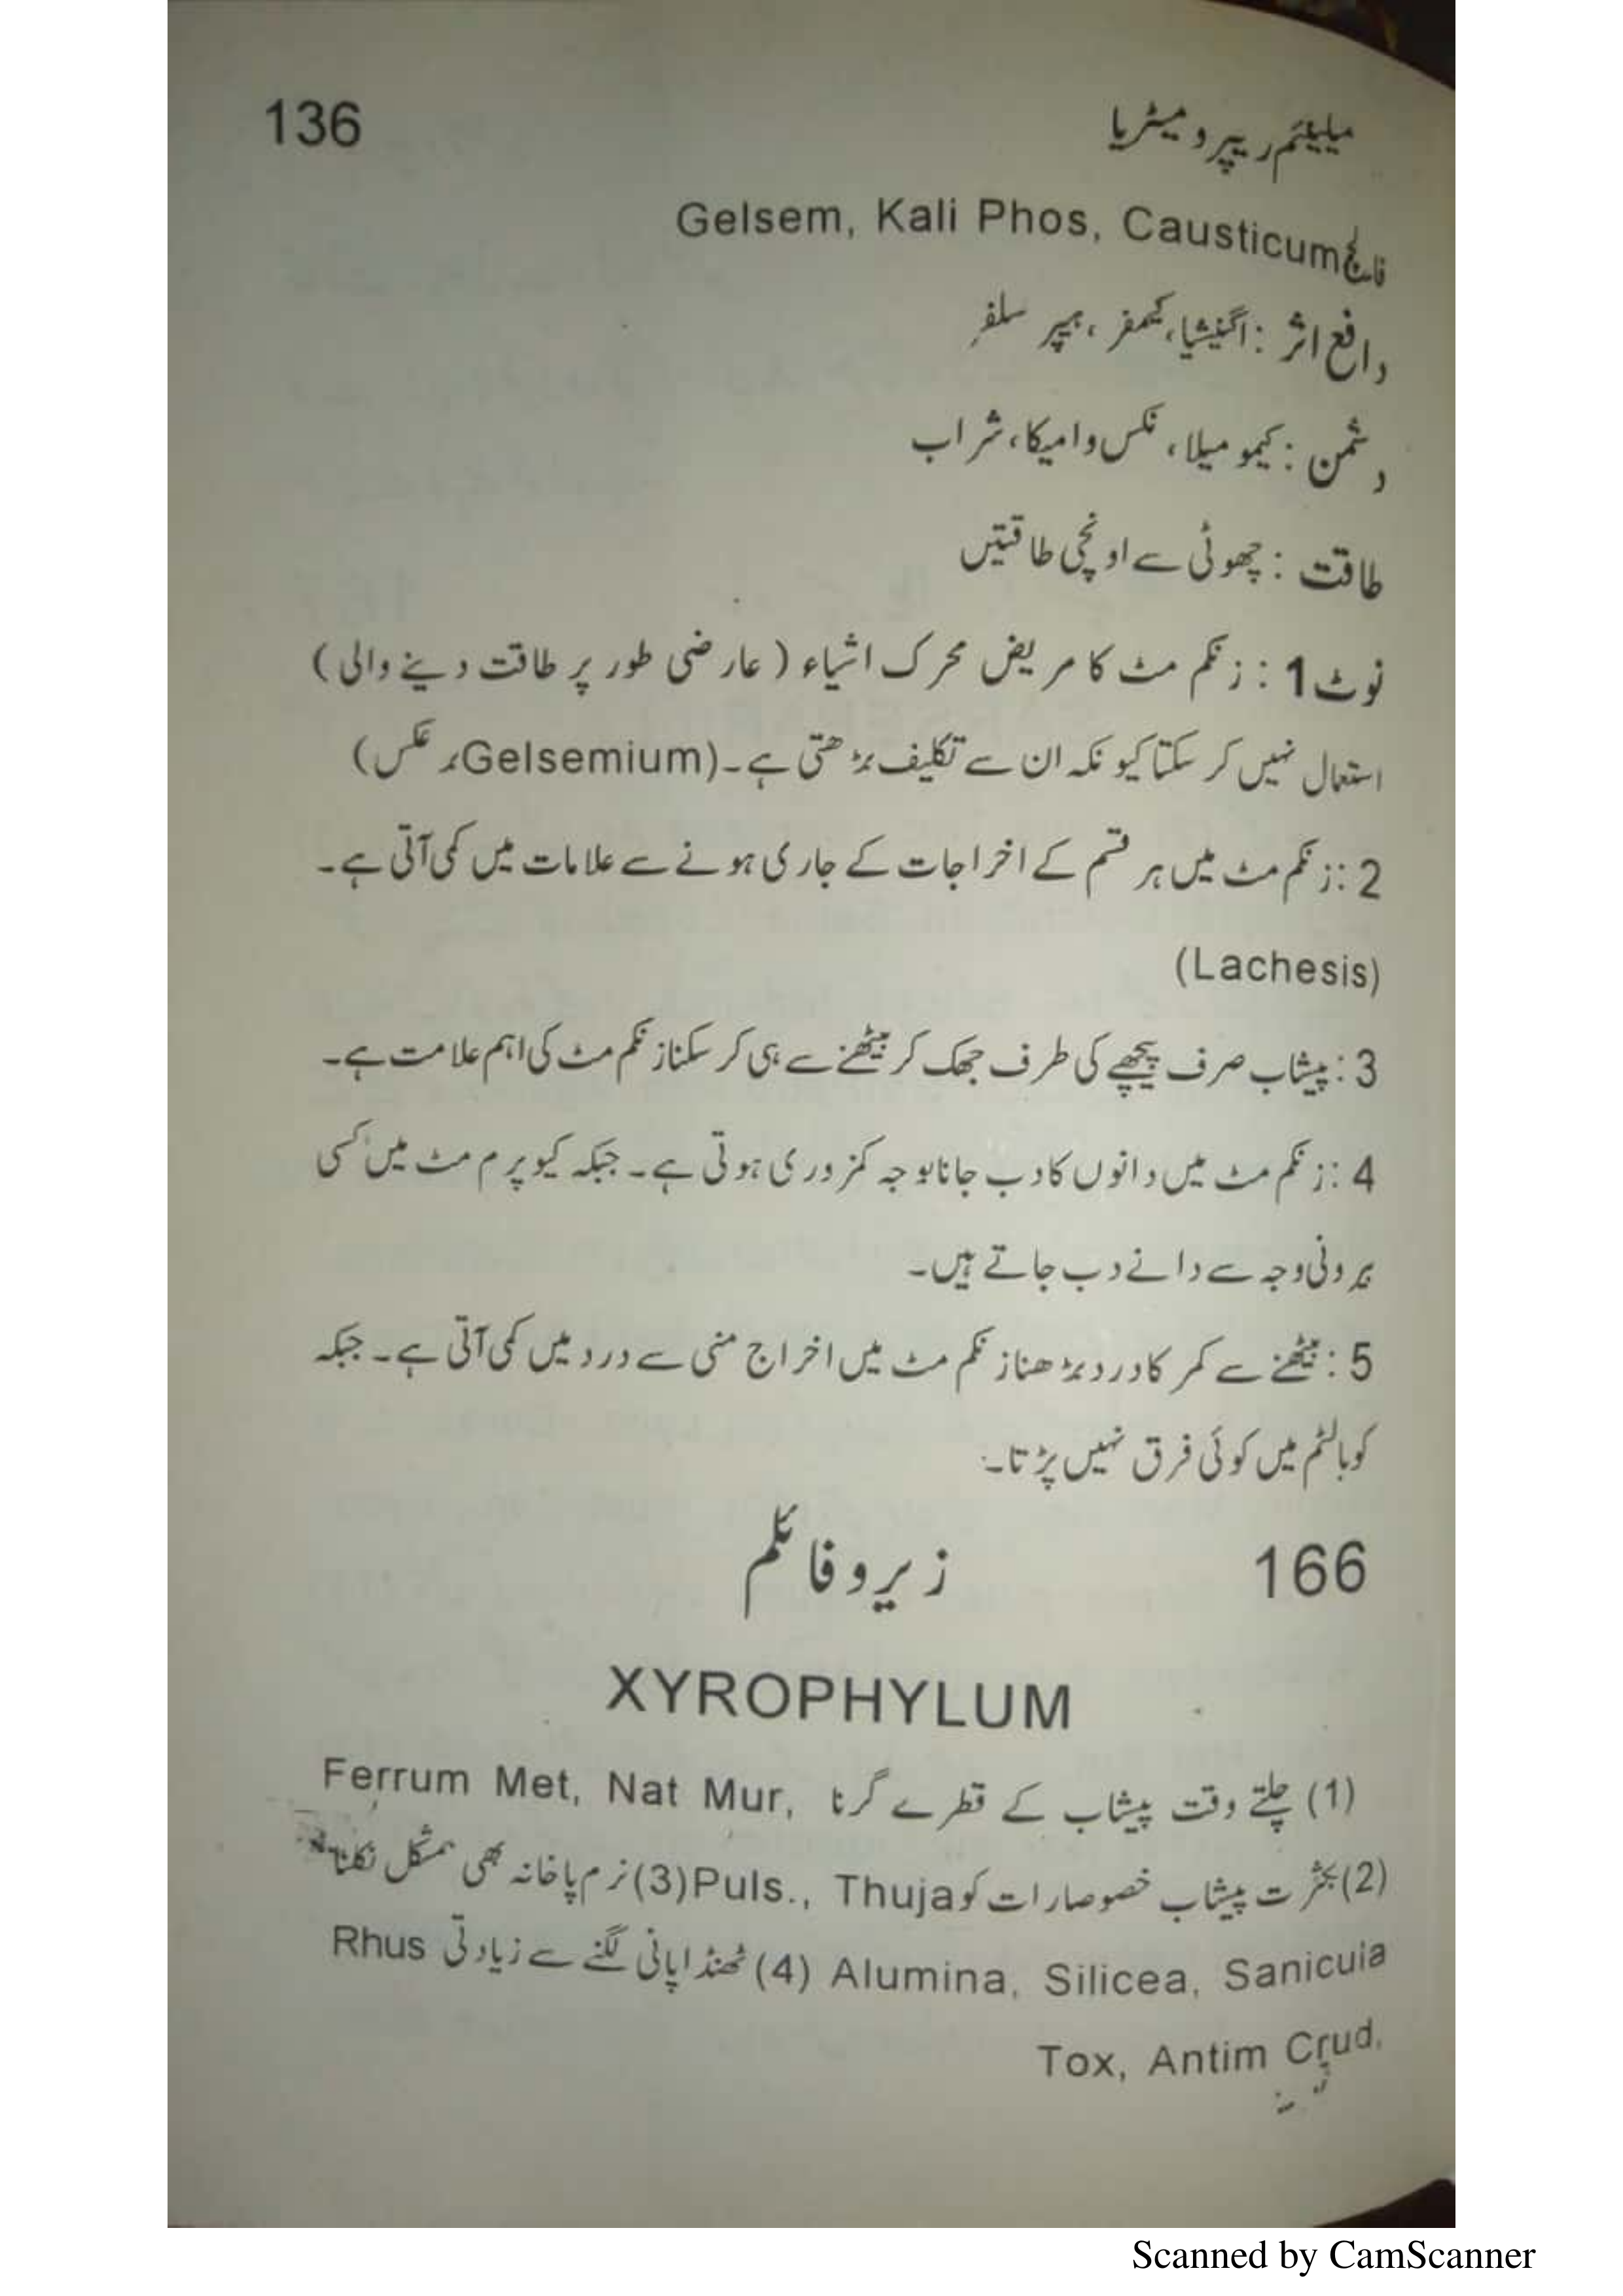 میلینئم ریپرو میٹریا 136
فالج Gelsem, Kali Phos, Causticum
دافع اثر : اگنیشیا، کیمفر، ہیپر سلفر
دشمن : کیمومیلا، نکس وامیکا، شراب
طاقت : چھوٹی سے اونچی طاقتیں
نوٹ 1 : زنکم مٹ کا مریض محرک اشیاء (عارضی طور پر طاقت دینے والی)
استعمال نہیں کر سکتا کیونکہ ان سے تکلیف بڑھتی ہے۔ (Gelsemium بر عکس)
2 : زنکم مٹ میں ہر قسم کے اخراجات کے جاری ہونے سے علامات میں کمی آتی ہے۔
(Lachesis)
3 : پیشاب صرف پیچھے کی طرف جھک کر بیٹھنے سے ہی کر سکنا زنکم مٹ کی اہم علامت ہے۔
4 : زنکم مٹ میں دانوں کا دب جانا بوجہ کمزوری ہوتی ہے۔ جبکہ کیوپرم مٹ میں کسی
بیرونی وجہ سے دانے دب جاتے ہیں۔
5 : بیٹھنے سے کمر کا درد بڑھنا زنکم مٹ میں اخراج منی سے درد میں کمی آتی ہے۔ جبکہ
کوبالٹم میں کوئی فرق نہیں پڑتا۔
166 زیروفائلم
XYROPHYLUM
(1) چلتے وقت پیشاب کے قطرے گرنا Ferrum Met, Nat Mur,
(2) بکثرت پیشاب خصوصا رات کو Puls., Thuja (3) نرم پاخانہ بھی بمشکل نکلنا
Alumina, Silicea, Sanicula (4) ٹھنڈا پانی لگنے سے زیادتی Rhus
Tox, Antim Crud.
Scanned by CamScanner